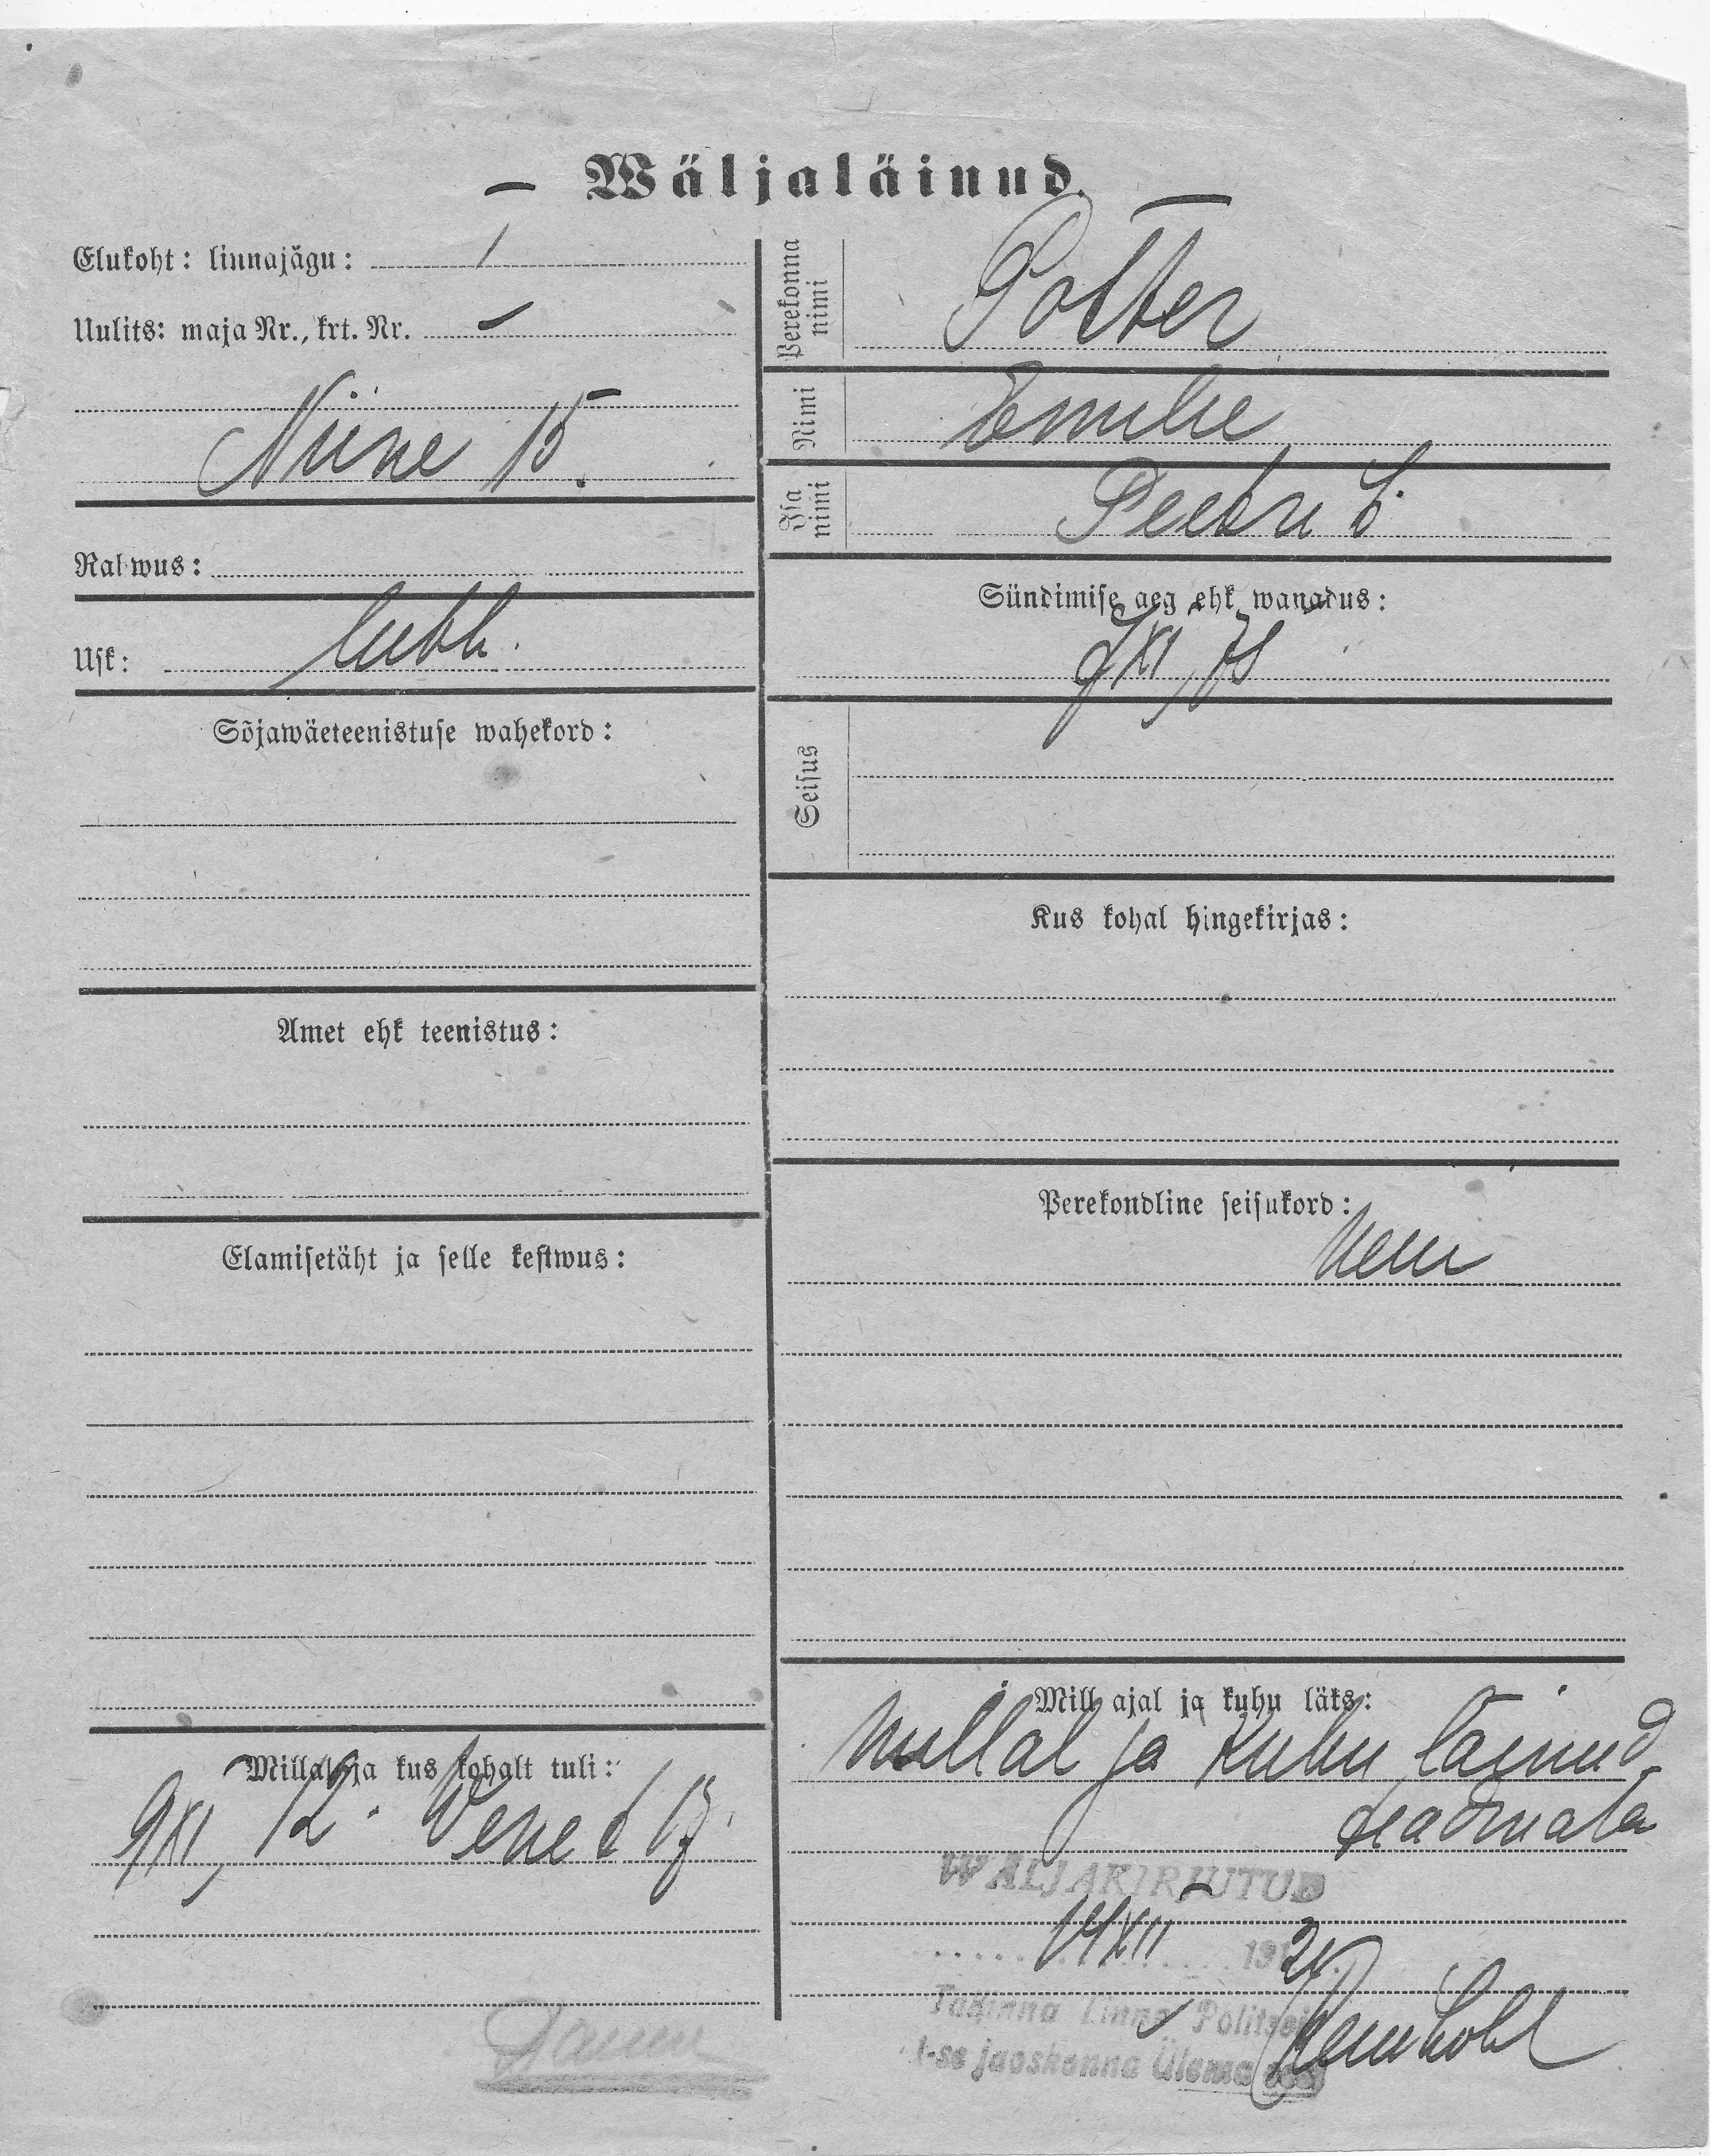 — Wäljaläinud. —
Elukoht: linnajägu: I
Uulits: maja Nr., krt. Nr.
Niine 15.
Rahwus:
Usk: luth.
Sõjawäeteenistuse wahekord:
Amet ehk teenistus:
Elamisetäht ja selle kestwus:
Millal ja kus kohalt tuli:
9/XI, 12. Wene t 17.
Perekonna nimi
Potter
Nimi
Emilie
Isa nimi
Peetri t.
Sündimise aeg ehk wanadus:
Seisus
Kus kohal hingekirjas:
Perekondline seisukord:
Mill ajal ja kuhu läks:
Millal ja kuhu läinud
teadmata
WÄLJAKIRJUTUD
14/XII 1921.
Tallinna Linna Politsei
I-se jaoskonna Ülema